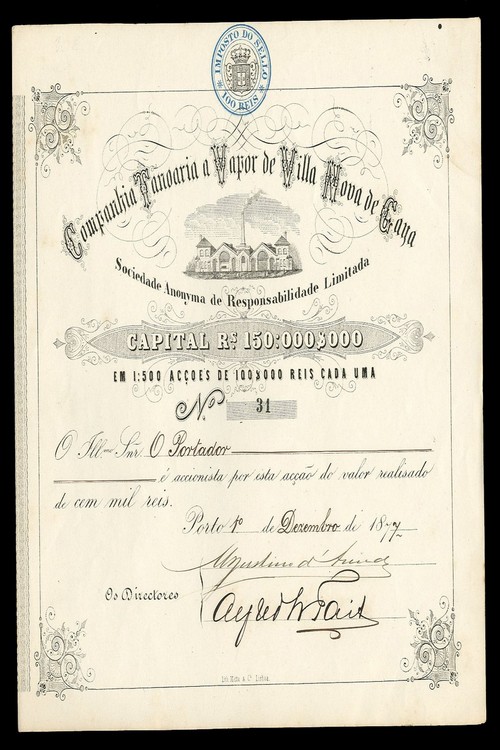 IMPOSTO DO SELLO
100 REIS
Companhia Tanoaria a Vapor de Villa Nova de Gaya
Sociedade Anonyma de Responsabilidade Limitada
CAPITAL Rs. 150:000$000
EM 1:500 ACÇOES DE 100$000 REIS CADA UMA
No. 31
O Ill.mo Snr. O Portador
é accionista por esta acção do valor realisado
de cem mil reis.
Porto 1º de Dezembro de 1877
Os Directores